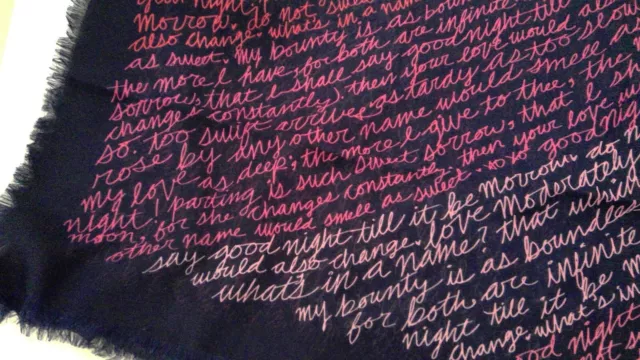 good night
morrow. do not swear
also change. what's in a name
as sweet. my bounty is as boun
the more I have, for both are infinite
sorrow, that I shall say good night till
changes constantly, then your love would also
so. too swift arrives as tardy as too slow
rose by any other name would smell a
my love as deep; the more I give to thee, the
night! parting is such sweet sorrow, that I sh
moon; for she changes constantly then your love w
other name would smell as sweet good nig
say good night till it be morrow. do n
would also change. love moderately
what's in a name? that which
my bounty is as boundless
for both are infinite
night till it be m
change. what's in
good night